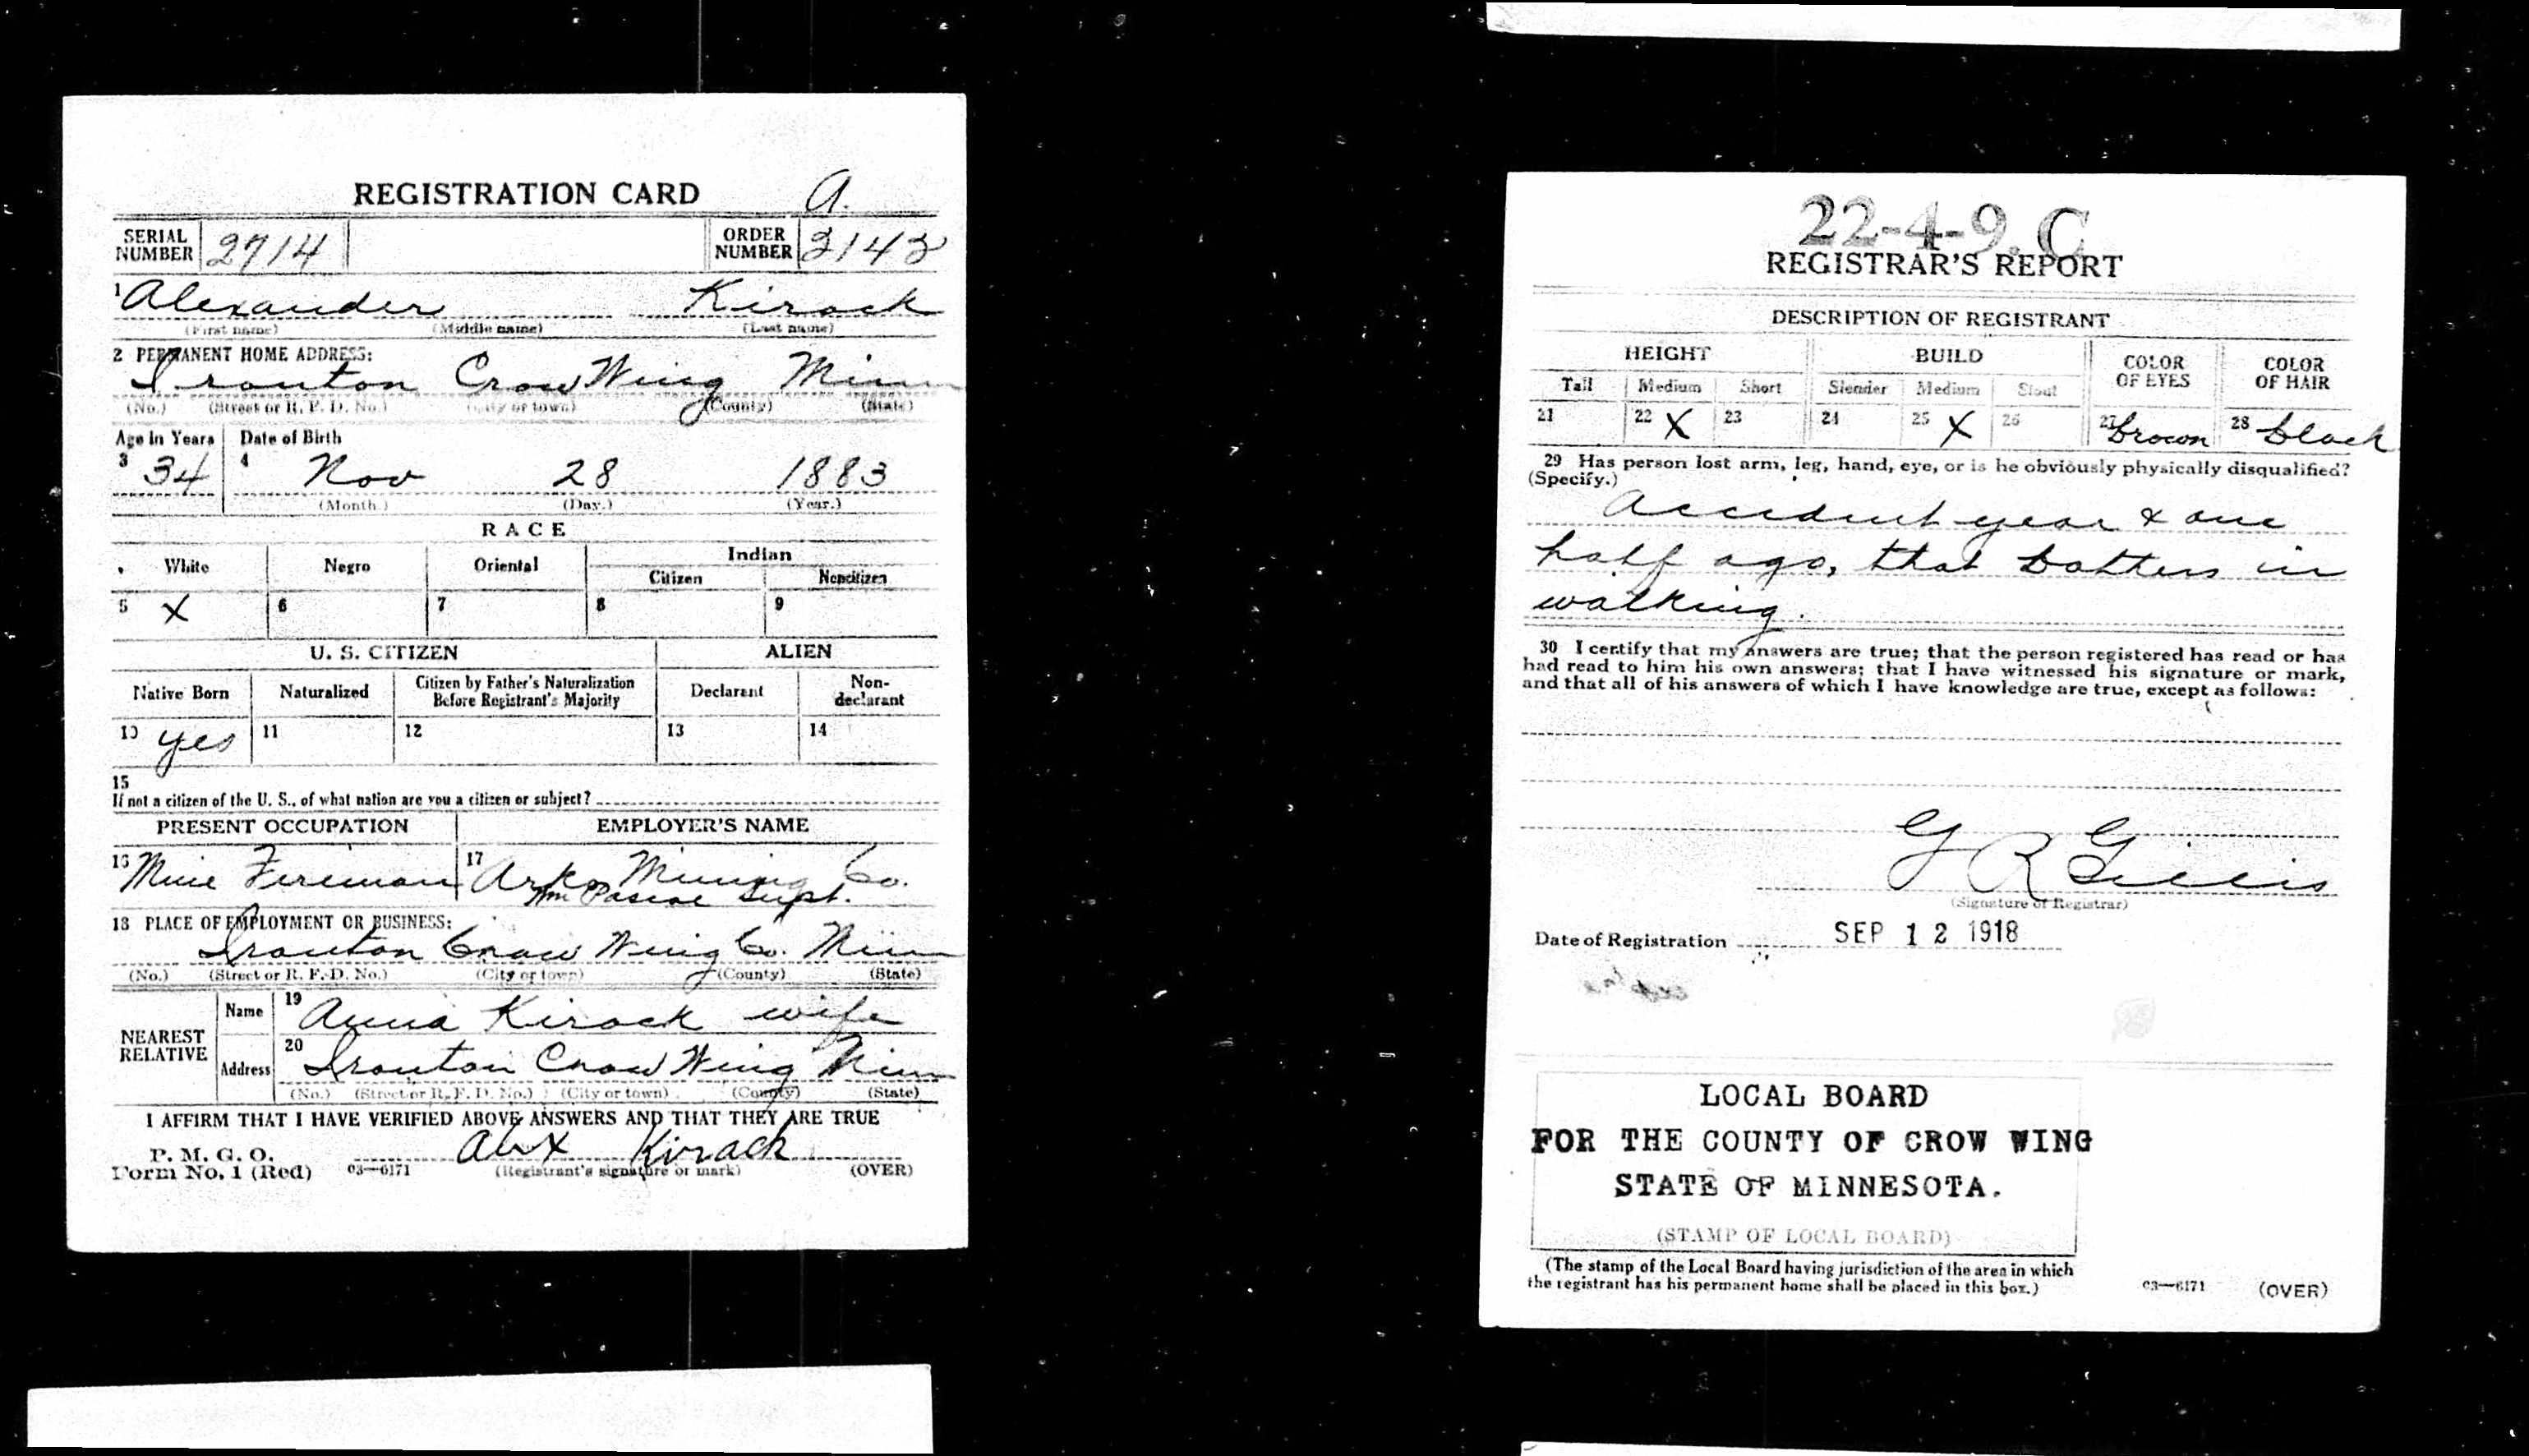 REGISTRATION CARD A.
SERIAL NUMBER 2714 ORDER NUMBER 2142
1 Alexander Kirack
(First name) (Middle name) (Last name)
2 PERMANENT HOME ADDRESS:
Ironton Crow Wing Minn
(No.) (Street or R. F. D. No.) (City or town) (County) (State)
Age in Years Date of Birth
3 34 4 Nov 28 1883
(Month.) (Day.) (Year.)
RACE
White Negro Oriental Indian
Citizen Noncitizen
5 X 6 7 8 9
U. S. CITIZEN ALIEN
Native Born Naturalized Citizen by Father's Naturalization Before Registrant's Majority Declarant Non-declarant
10 yes 11 12 13 14
15
If not a citizen of the U. S., of what nation are you a citizen or subject?
PRESENT OCCUPATION EMPLOYER'S NAME
16 Mine Fireman 17 Arko Mining Co.
Wm Pascoe Supt.
18 PLACE OF EMPLOYMENT OR BUSINESS:
Ironton Crow Wing Co. Minn
(No.) (Street or R. F. D. No.) (City or town) (County) (State)
NEAREST RELATIVE
Name 19 Anna Kirack wife
Address 20 Ironton Crow Wing Minn
(No.) (Street or R. F. D. No.) (City or town) (County) (State)
I AFFIRM THAT I HAVE VERIFIED ABOVE ANSWERS AND THAT THEY ARE TRUE
P. M. G. O.
Form No. 1 (Red) 03—6171 Alex Kirack
(Registrant's signature or mark) (OVER)
22-4-9. C
REGISTRAR'S REPORT
DESCRIPTION OF REGISTRANT
HEIGHT BUILD COLOR OF EYES COLOR OF HAIR
Tall Medium Short Slender Medium Stout
21 22 X 23 24 25 X 26 27 brown 28 black
29 Has person lost arm, leg, hand, eye, or is he obviously physically disqualified?
(Specify.)
accident year & one
half ago, that bothers in
walking.
30 I certify that my answers are true; that the person registered has read or has
had read to him his own answers; that I have witnessed his signature or mark,
and that all of his answers of which I have knowledge are true, except as follows:
G R Gillis
(Signature of Registrar)
Date of Registration SEP 12 1918
LOCAL BOARD
FOR THE COUNTY OF CROW WING
STATE OF MINNESOTA.
(STAMP OF LOCAL BOARD)
(The stamp of the Local Board having jurisdiction of the area in which
the registrant has his permanent home shall be placed in this box.)
03—6171 (OVER)